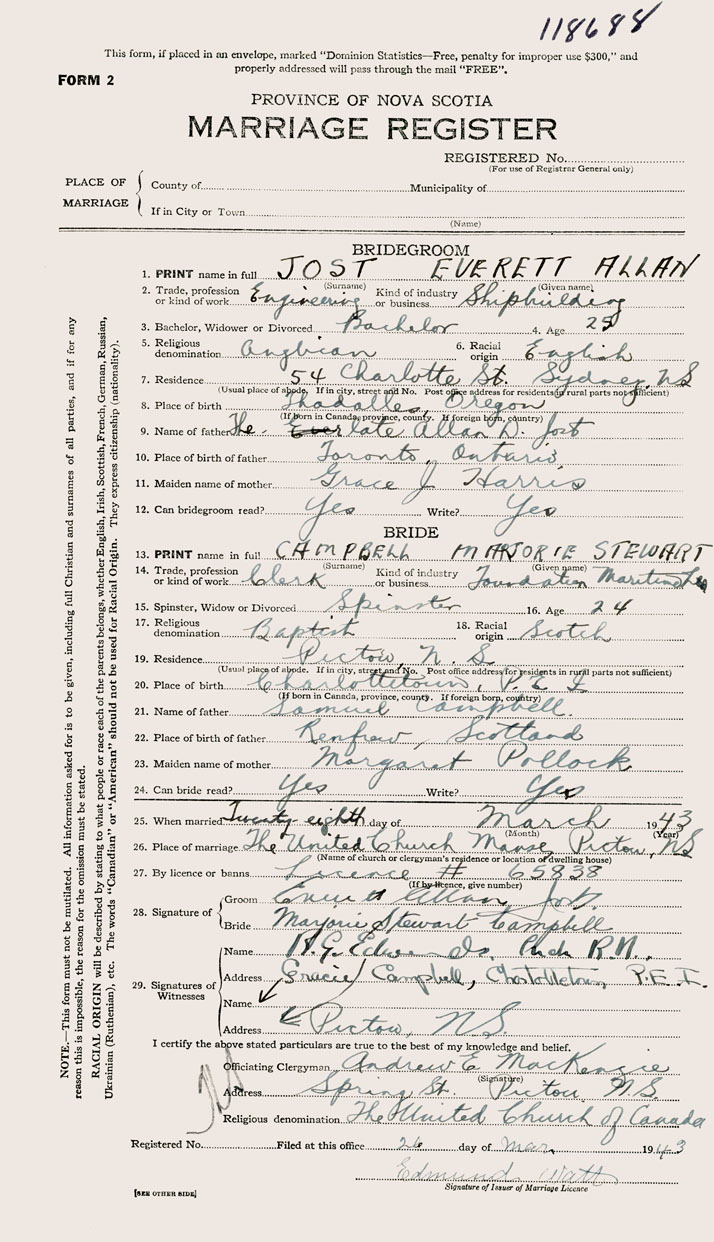 118688
This form, if placed in an envelope, marked "Dominion Statistics—Free, penalty for improper use $300," and
properly addressed will pass through the mail "FREE".
FORM 2
PROVINCE OF NOVA SCOTIA
MARRIAGE REGISTER
REGISTERED No.
(For use of Registrar General only)
PLACE OF MARRIAGE
County of Municipality of
If in City or Town
(Name)
BRIDEGROOM
1. PRINT name in full JOST EVERETT ALLAN
(Surname) (Given name)
2. Trade, profession or kind of work Engineering Kind of industry or business Shipbuilding
3. Bachelor, Widower or Divorced Bachelor 4. Age 25
5. Religious denomination Anglican 6. Racial origin English
7. Residence 54 Charlotte St. Sydney, NS
(Usual place of abode. If in city, street and No. Post office address for residents in rural parts not sufficient)
8. Place of birth Oregon
(If born in Canada, province, county. If foreign born, country)
9. Name of father The late Allan D. Jost
10. Place of birth of father Toronto, Ontario
11. Maiden name of mother Grace J Harris
12. Can bridegroom read? Yes Write? Yes
BRIDE
13. PRINT name in full CAMPBELL MARJORIE STEWART
(Surname) (Given name)
14. Trade, profession or kind of work Clerk Kind of industry or business Foundation Maritime
15. Spinster, Widow or Divorced Spinster 16. Age 24
17. Religious denomination Baptist 18. Racial origin Scotch
19. Residence Pictou, N.S
(Usual place of abode. If in city, street and No. Post office address for residents in rural parts not sufficient)
20. Place of birth Charlottetown, P.E.I
(If born in Canada, province, county. If foreign born, country)
21. Name of father Samuel Campbell
22. Place of birth of father Renfrew, Scotland
23. Maiden name of mother Margaret Pollock
24. Can bride read? Yes Write? Yes
25. When married Twenty eighth day of March 1943
(Month) (Year)
26. Place of marriage The United Church Manse, Pictou, NS
(Name of church or clergyman's residence or location of dwelling house)
27. By licence or banns Licence # 65838
(If by licence, give number)
28. Signature of
Groom Everett Allan Jost
Bride Marjorie Stewart Campbell
29. Signatures of Witnesses
Name
Address Gracie Campbell, Charlottetown, P.E.I.
Name
Address Pictou, N.S.
I certify the above stated particulars are true to the best of my knowledge and belief.
Officiating Clergyman Andrew E MacKenzie
(Signature)
Address Spring St. Pictou N.S
Religious denomination The United Church of Canada
Registered No. Filed at this office 26 day of Mar. 1943
Edmund Watt
Signature of Issuer of Marriage Licence
[SEE OTHER SIDE]
NOTE.—This form must not be mutilated. All information asked for is to be given, including full Christian and surnames of all parties, and if for any
reason this is impossible, the reason for the omission must be stated.
RACIAL ORIGIN will be described by stating to what people or race each of the parents belongs, whether English, Irish, Scottish, French, German, Russian,
Ukrainian (Ruthenian), etc. The words "Canadian" or "American" should not be used for Racial Origin. They express citizenship (nationality).